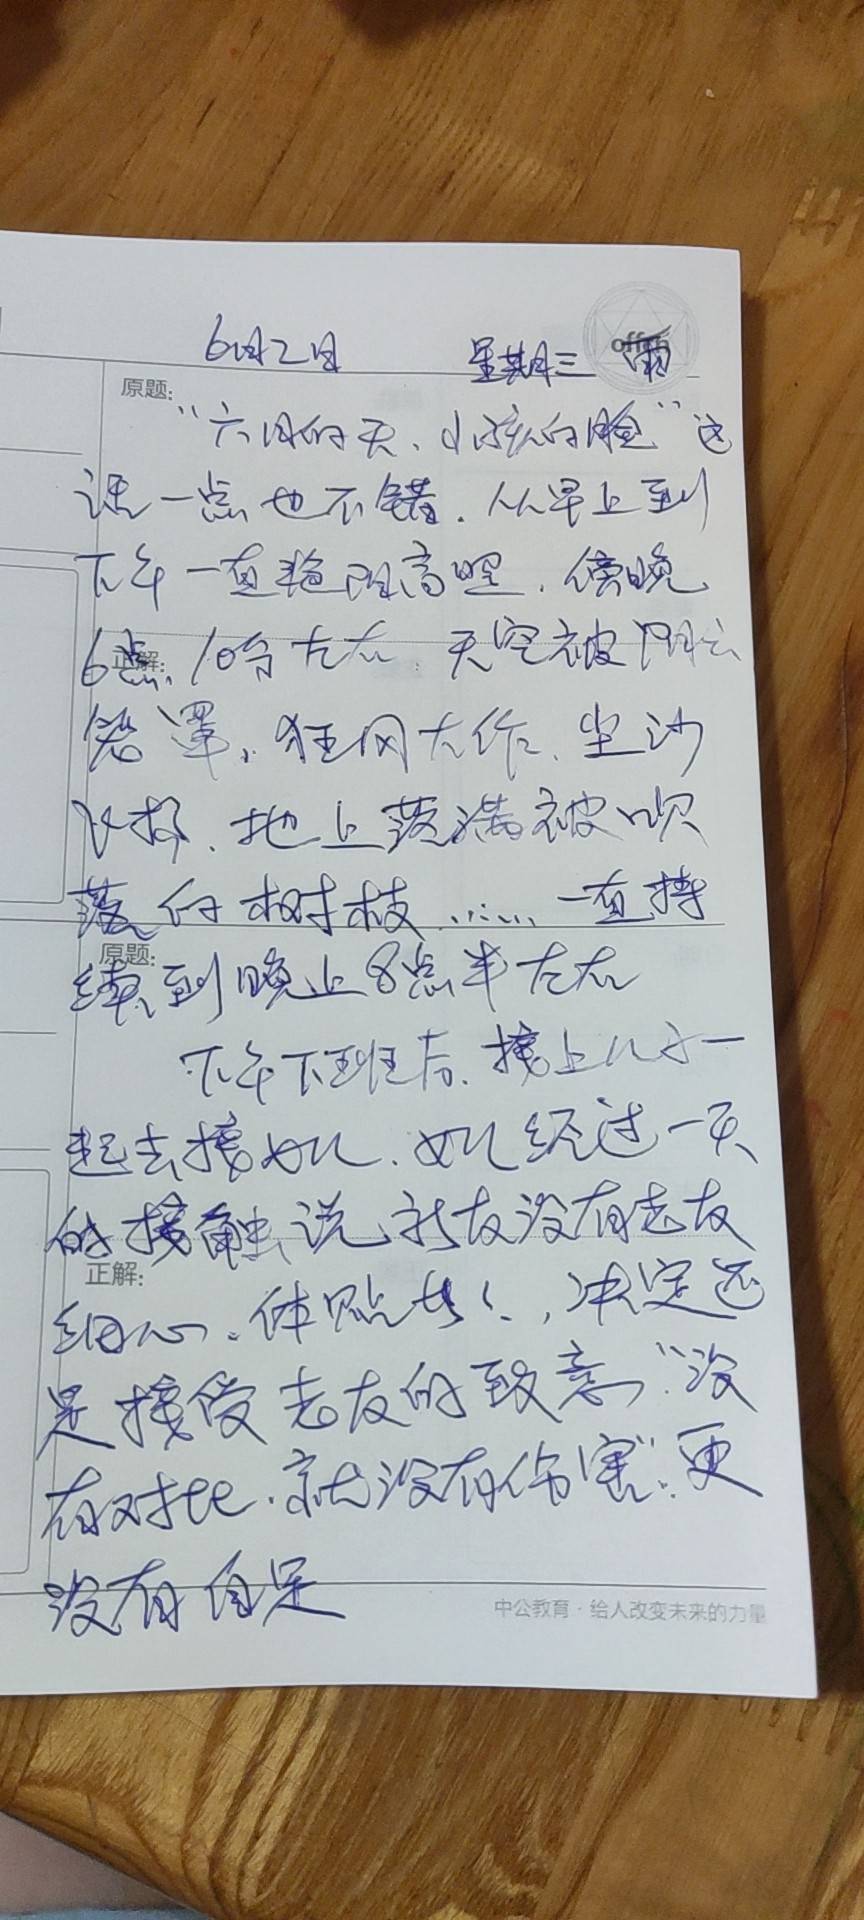 6月2日 星期三 雨
offcn
原题:
“六月的天、小孩的脸”这
话一点也不错.从早上到
下午一直艳阳高照.傍晚
正解:
6点10分左右.天空被阴云
笼罩,狂风大作、尘沙
飞扬、地上落满被吹
落的树枝……一直持
原题:
续到晚上8点半左右
下午下班后.接上儿子一
起去接 . 经过一天
的接触,说新友没有老友
正解:
细心、体贴 ,决定还
是接受老友的致意“没
有对比.就没有伤害”.更
没有自足
中公教育·给人改变未来的力量